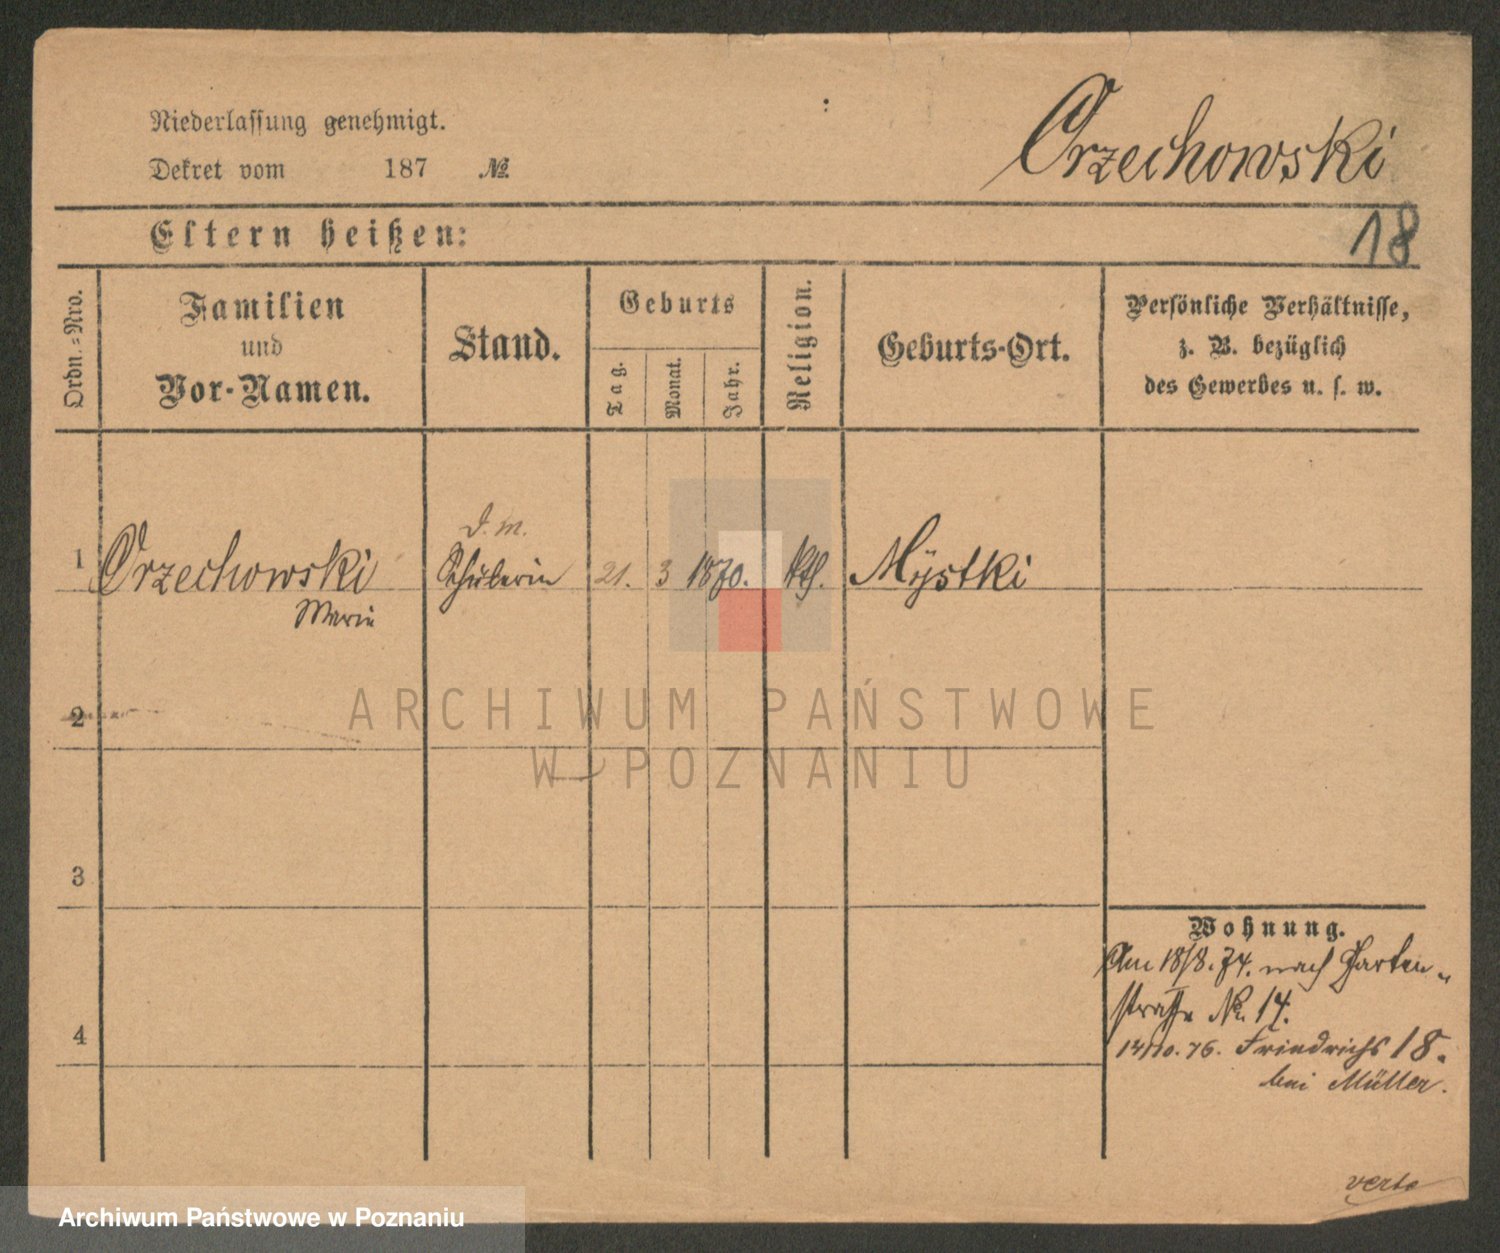 Niederlassung genehmigt.
Dekret vom 187 №
Orzechowski
18
Eltern heißen:
Ordn.=Nro.
Familien
und
Vor-Namen.
Stand.
Geburts
Tag.
Monat.
Jahr.
Religion.
Geburts-Ort.
Persönliche Verhältnisse,
z. B. bezüglich
des Gewerbes u. s. w.
d. m.
1 Orzechowski Schülerin 21. 3 1870. kth. Mÿstki
Marie
2
3
4
ARCHIWUM PAŃSTWOWE
W POZNANIU
Wohnung.
Am 18/8.74. nach Garten-
straße No. 14.
10.76. Friedrichs 18.
bei Müller.
verte
Archiwum Państwowe w Poznaniu